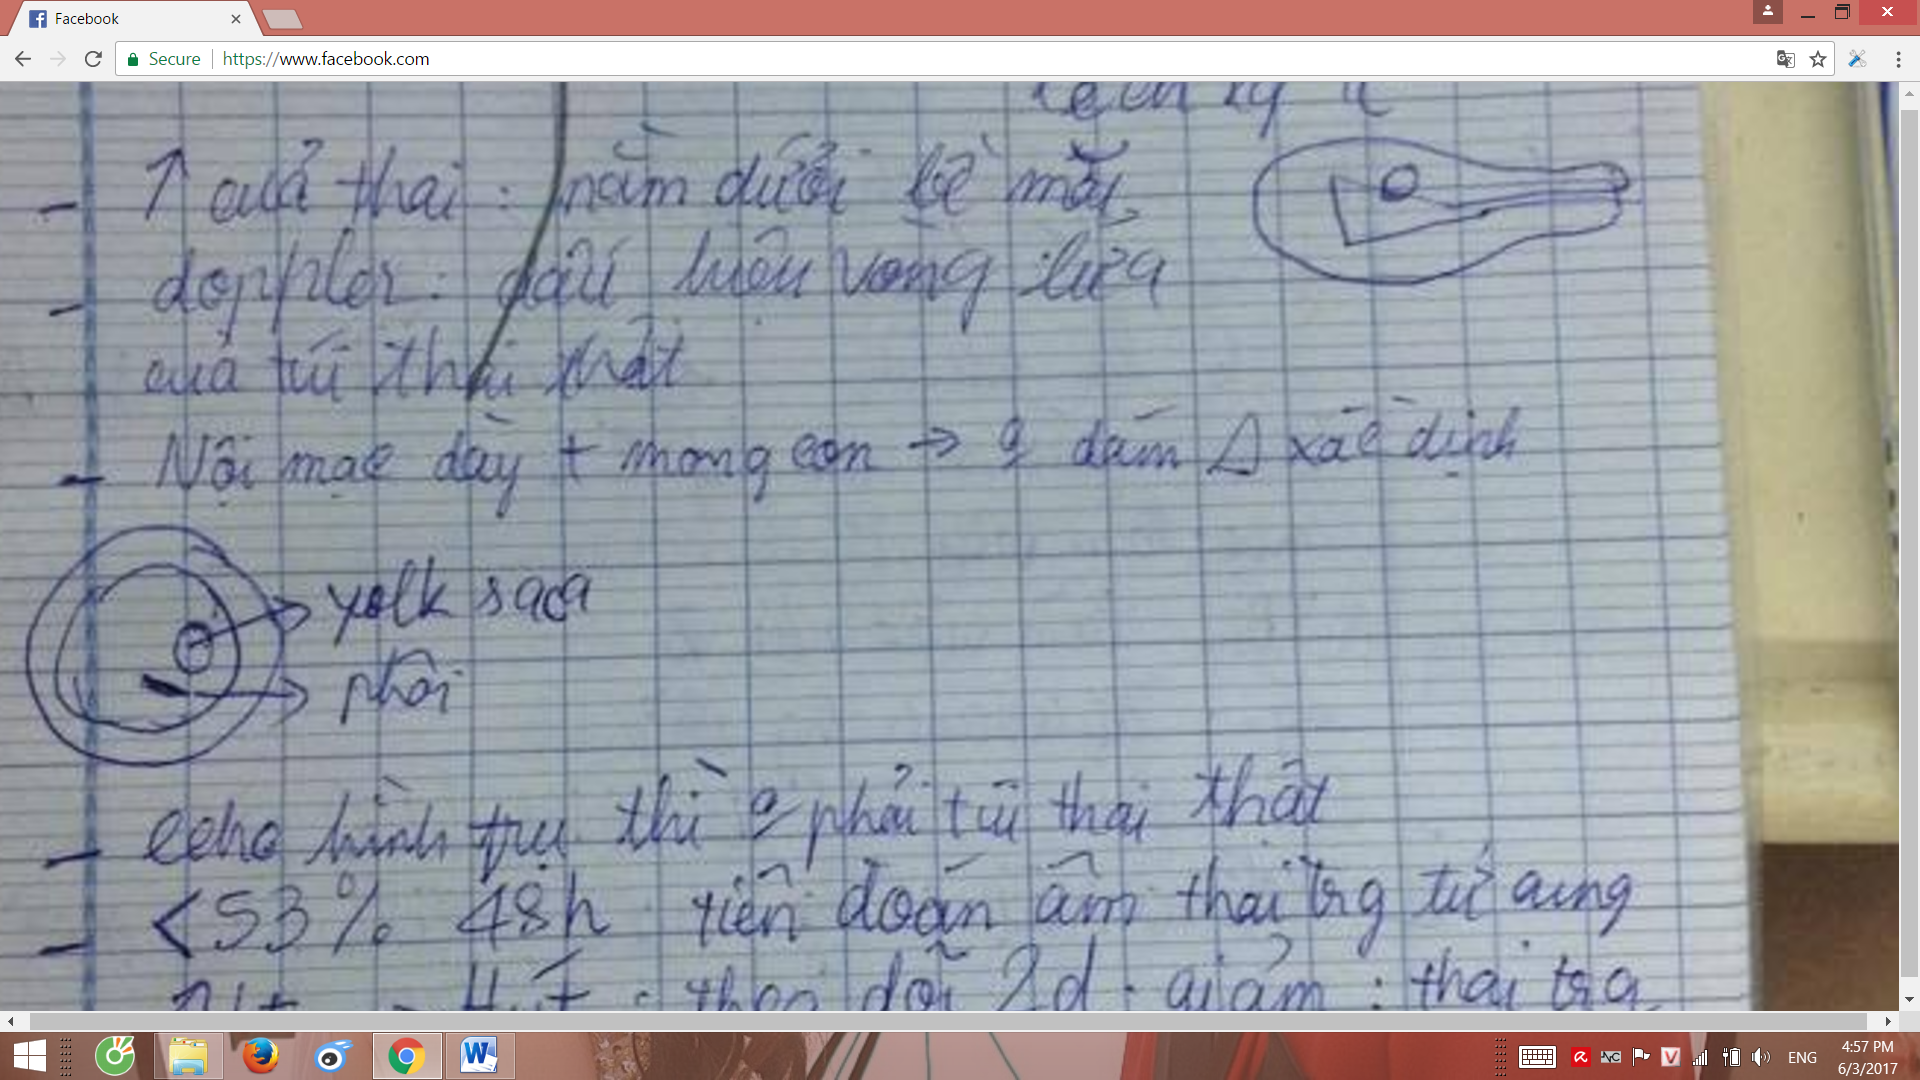 Facebook
Secure https://www.facebook.com
- ↑ của thai : nằm dưới bề mặt
- doppler : dấu hiệu vòng lửa
của túi thai thật
- Nội mạc dày + mong con → dám Δ xác định
yolk saca
phôi
- echo hình trụ thì phải túi thai thật
- <53% 48h tiên đoán âm thai trg tử cung
Hút : theo dõi 2d : giảm : thai trg
ENG
4:57 PM
6/3/2017